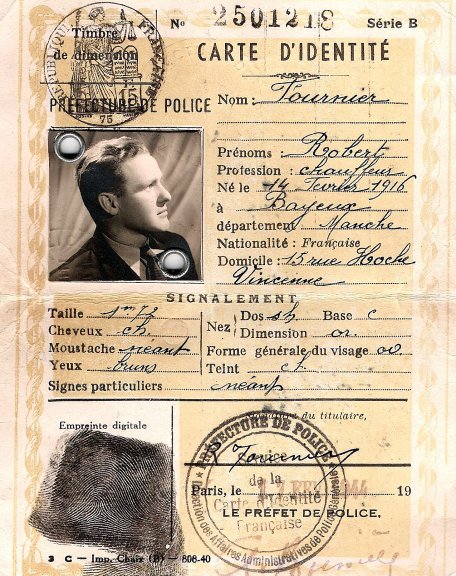 RÉPUBLIQUE FRANÇAISE
Timbre
de dimension
15F
75
No 2501218 Série B
CARTE D'IDENTITÉ
PRÉFECTURE DE POLICE
Nom: Fournier
Prénoms: Robert
Profession: chauffeur
Né le 14 Fevrier 1916
à Bayeux
département Manche
Nationalité: Française
Domicile: 15 rue Hoche
Vincenne
SIGNALEMENT
Taille 1m72
Cheveux ch.
Moustache néant
Yeux bruns
Signes particuliers néant
Nez: Dos Base c
Dimension
Forme générale du visage
Teint cl.
Empreinte digitale
du titulaire,
Fournier
PRÉFECTURE DE POLICE
de la
Carte d'Identité
Française
Direction des Affaires Administratives de Police Générale
Paris, le 1944 19
LE PRÉFET DE POLICE,
3 C — Imp. Chaix (B) — 808-40